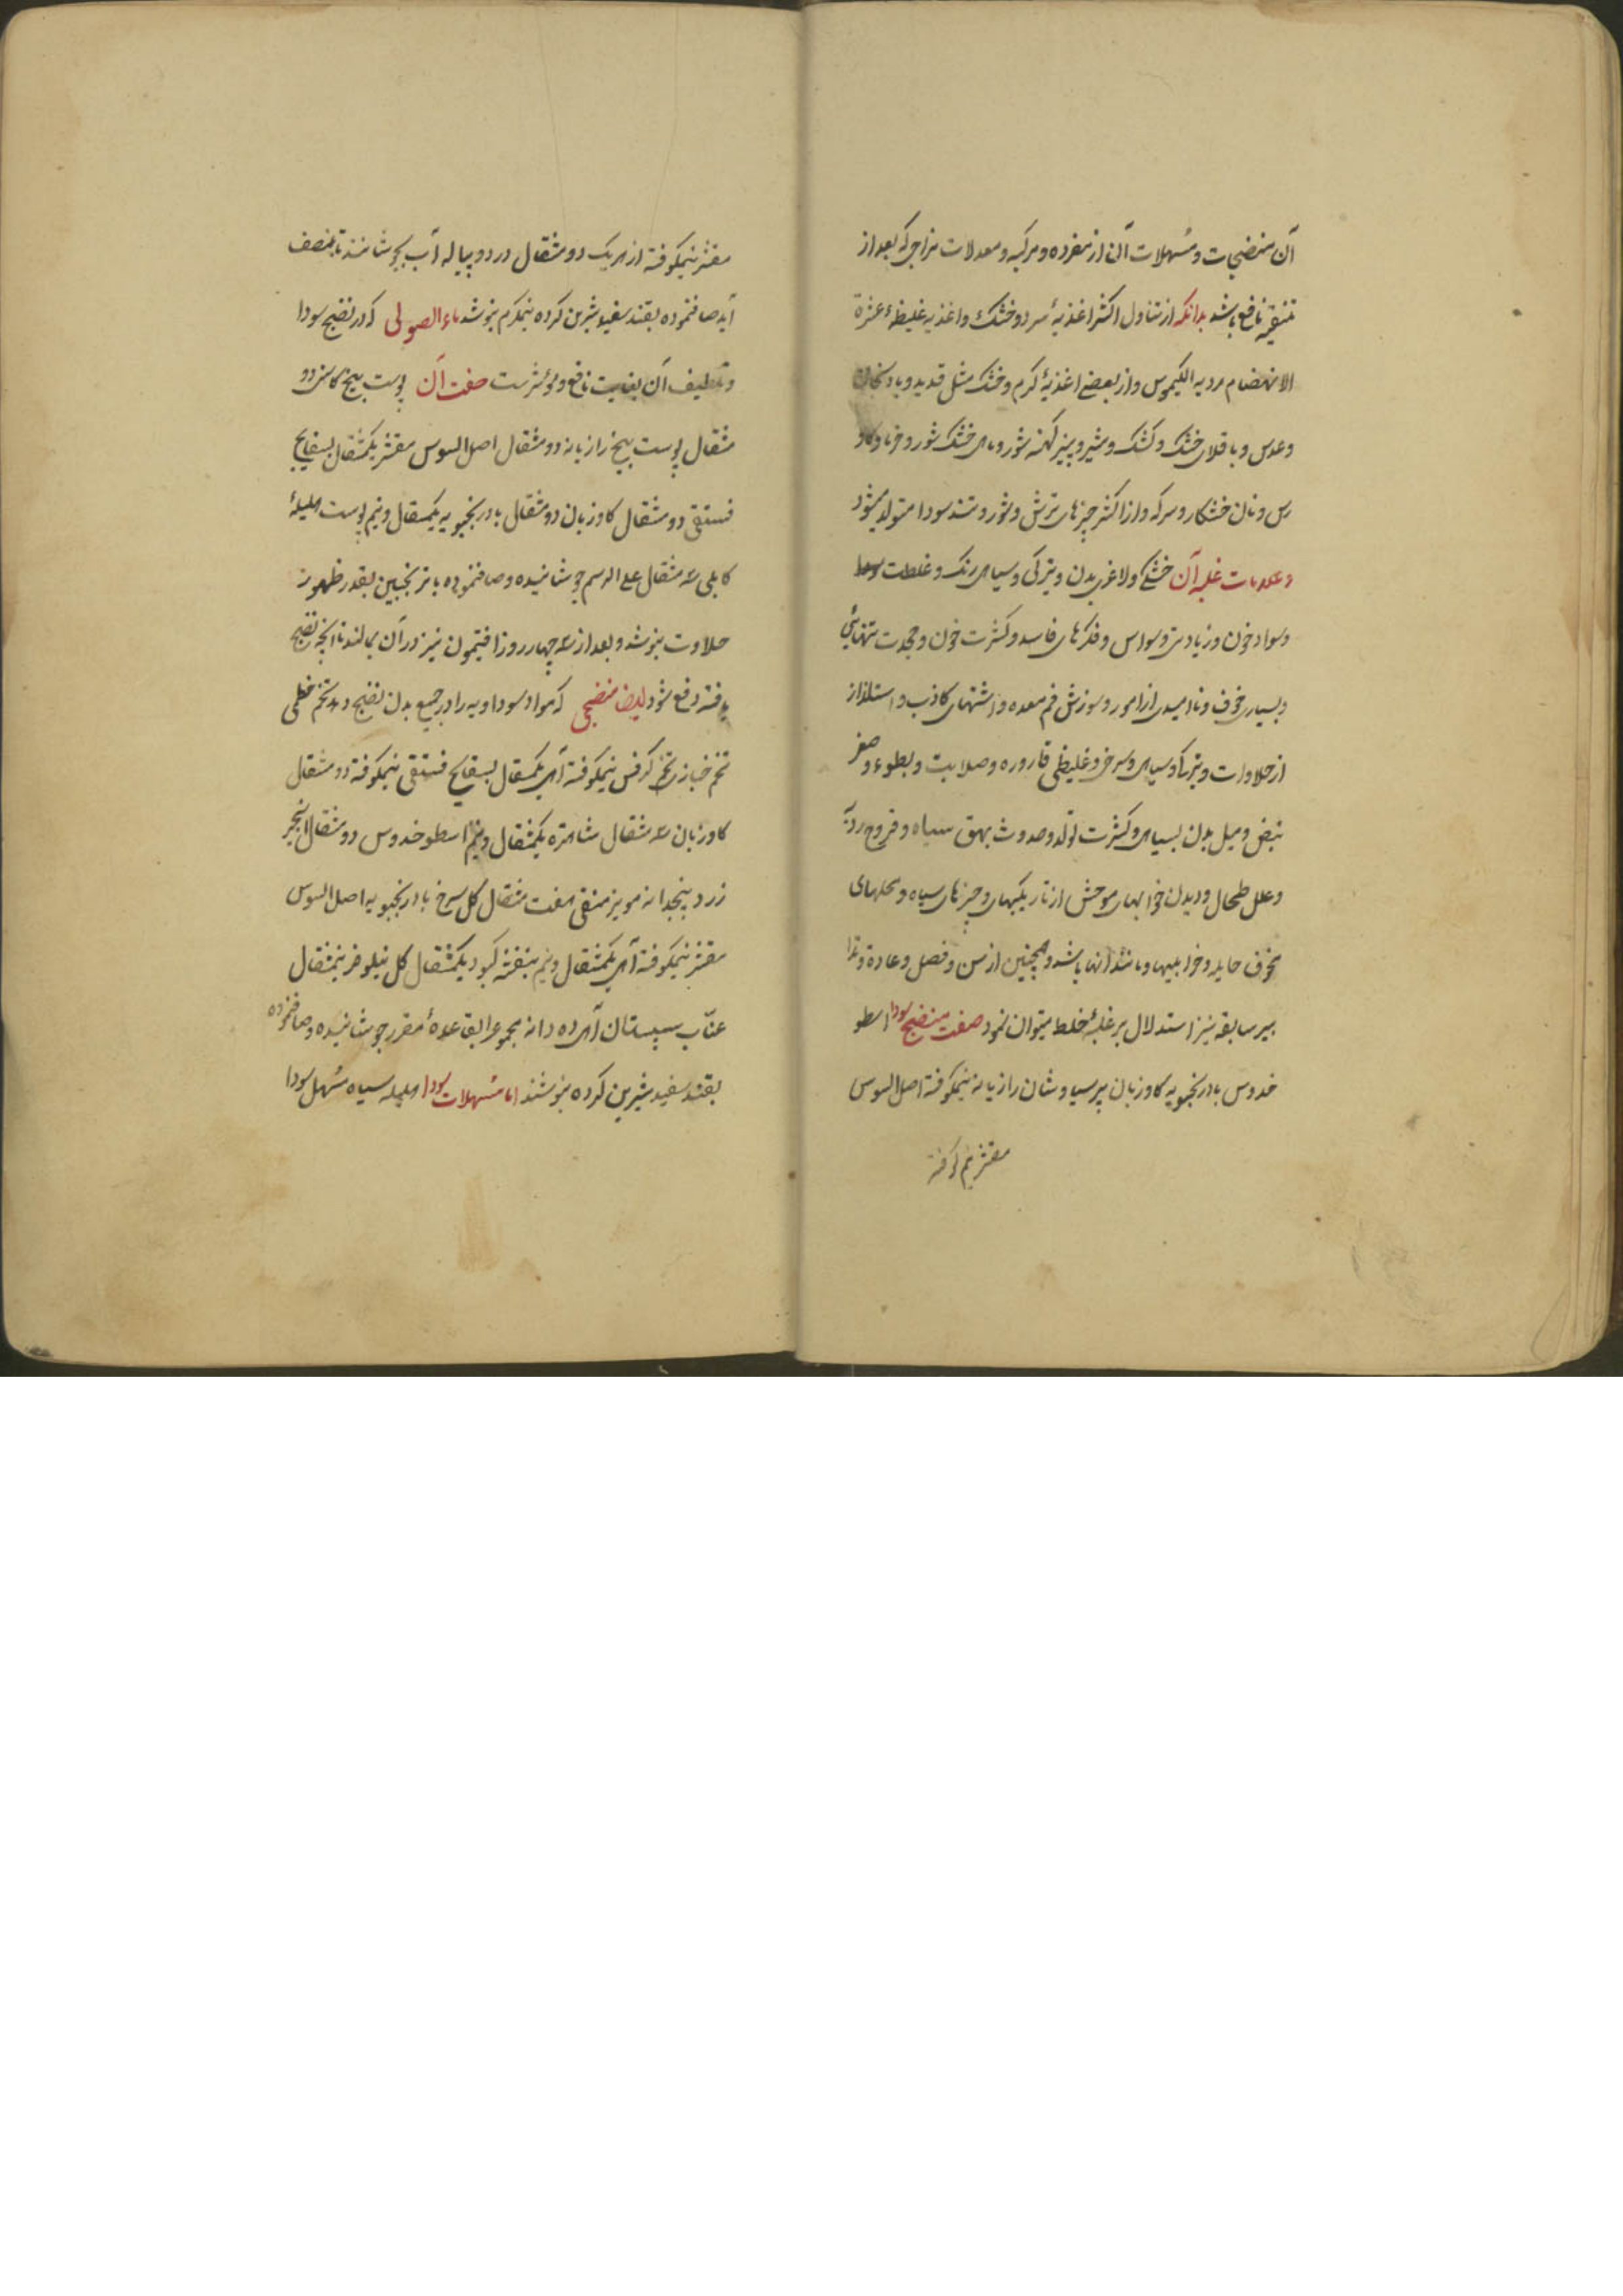 آن منضجات و مسهلات آن از مفرده و مرکبه و معدلات مزاجی که بعد از
تنقیه نافع باشد بدانکه از تناول اکثر اغذیهٔ سرد و خشک و اغذیه غلیظهٔ عسرة
الانهضام ردیه الکیموس و از بعضی اغذیهٔ گرم و خشک مثل قدید و بادنجان
و عدس و باقلای خشک و کشک و شیر و پنیر کهنه شور و ماهی خشک شور و خرما و کاو
رس و نان خشکار و سرکه و از اکثر چیزهای ترش و شور و تند سودا متولد میشود
و علامات غلبه آن خشکی و لاغری بدن و تیرگی و سیاهی رنگ و غلظت
و سواد خون و زیادتی وسواس و فکرهای فاسد و کثرت خون و محبت تنهائی
و بسیاری خوف و ناامیدی از امور و سوزش فم معده و اشتهای کاذب و استلذاذ
از حلاوات و تیرگی و سیاهی و سرخی و غلیظی قاروره و صلابت و بطوء و صغر
نبض و میل بدن بسیاهی و کثرت تولد و حدوث بهق سیاه و قروح ردیه
و علل طحال و دیدن خوابهای موحش از تاریکیها و چیزهای سیاه و محلهای
مخوف هایله و خرابیها و مانند آنها باشد و همچنین از سن و فصل و عادة و تدا
بیر سابقه نیز استدلال بر غلبهٔ خلط میتوان نمود صفت منضج سودا اسطو
خدوس بادرنجبویه کاوزبان پرسیاوشان رازیانه نیمکوفته اصل السوس
مقشر نیم کوفته
مقشر نیمکوفته از هر یک دو مثقال در دو پیاله آب بجوشانند تا بنصف
آید صاف نموده بقند سفید شیرین کرده نیمگرم بنوشد ماء الاصولی که در نضج سودا
و تلطیف آن بغایت نافع و مؤثر است صفت آن پوست بیخ کاسنی دو
مثقال پوست بیخ رازیانه دو مثقال اصل السوس مقشر یکمثقال بسفایج
فستقی دو مثقال کاوزبان دو مثقال بادرنجبویه یکمثقال و نیم پوست هلیلهٔ
کابلی سه مثقال علی الرسم جوشانیده و صاف نموده با ترنجبین بقدر ظهور
حلاوت بنوشد و بعد از سه چهار روز افتیمون نیز در آن بمالند تا آنچه نضج
یافته دفع شود ایضا منضجی که مواد سوداویه را در جمیع بدن نضج دهد تخم خطمی
تخم خبازی تخم کرفس نیمکوفته از هر یک مثقال بسفایج فستقی نیمکوفته دو مثقال
کاوزبان سه مثقال شاهتره یکمثقال و نیم اسطوخدوس دو مثقال انجیر
زرد پنجدانه مویز منقی هفت مثقال گل سرخ بادرنجبویه اصل السوس
مقشر نیمکوفته از هر یک مثقال و نیم بنفشه کبود یکمثقال گل نیلوفر نیمثقال
عنّاب سپستان از هر ده دانه مجموع را بقاعدهٔ مقرر جوشانیده و صاف نموده
بقند سفید شیرین کرده بنوشند اما مسهلات سودا هلیله سیاه مسهل سودا